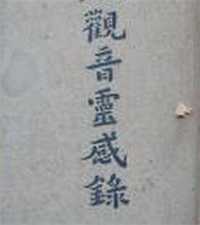 觀音靈感錄